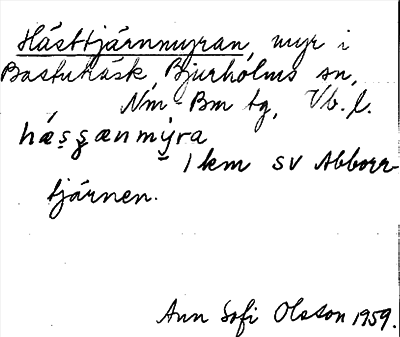 Hästtjärnmyran, myr i
Bastuträsk, Bjurholms sn,
Nm-Bm tg, Vb. l.
hæs̩s̩ænmy̱ra
1 km sv Abborr-
tjärnen.
Ann Sofi Olsson 1959.